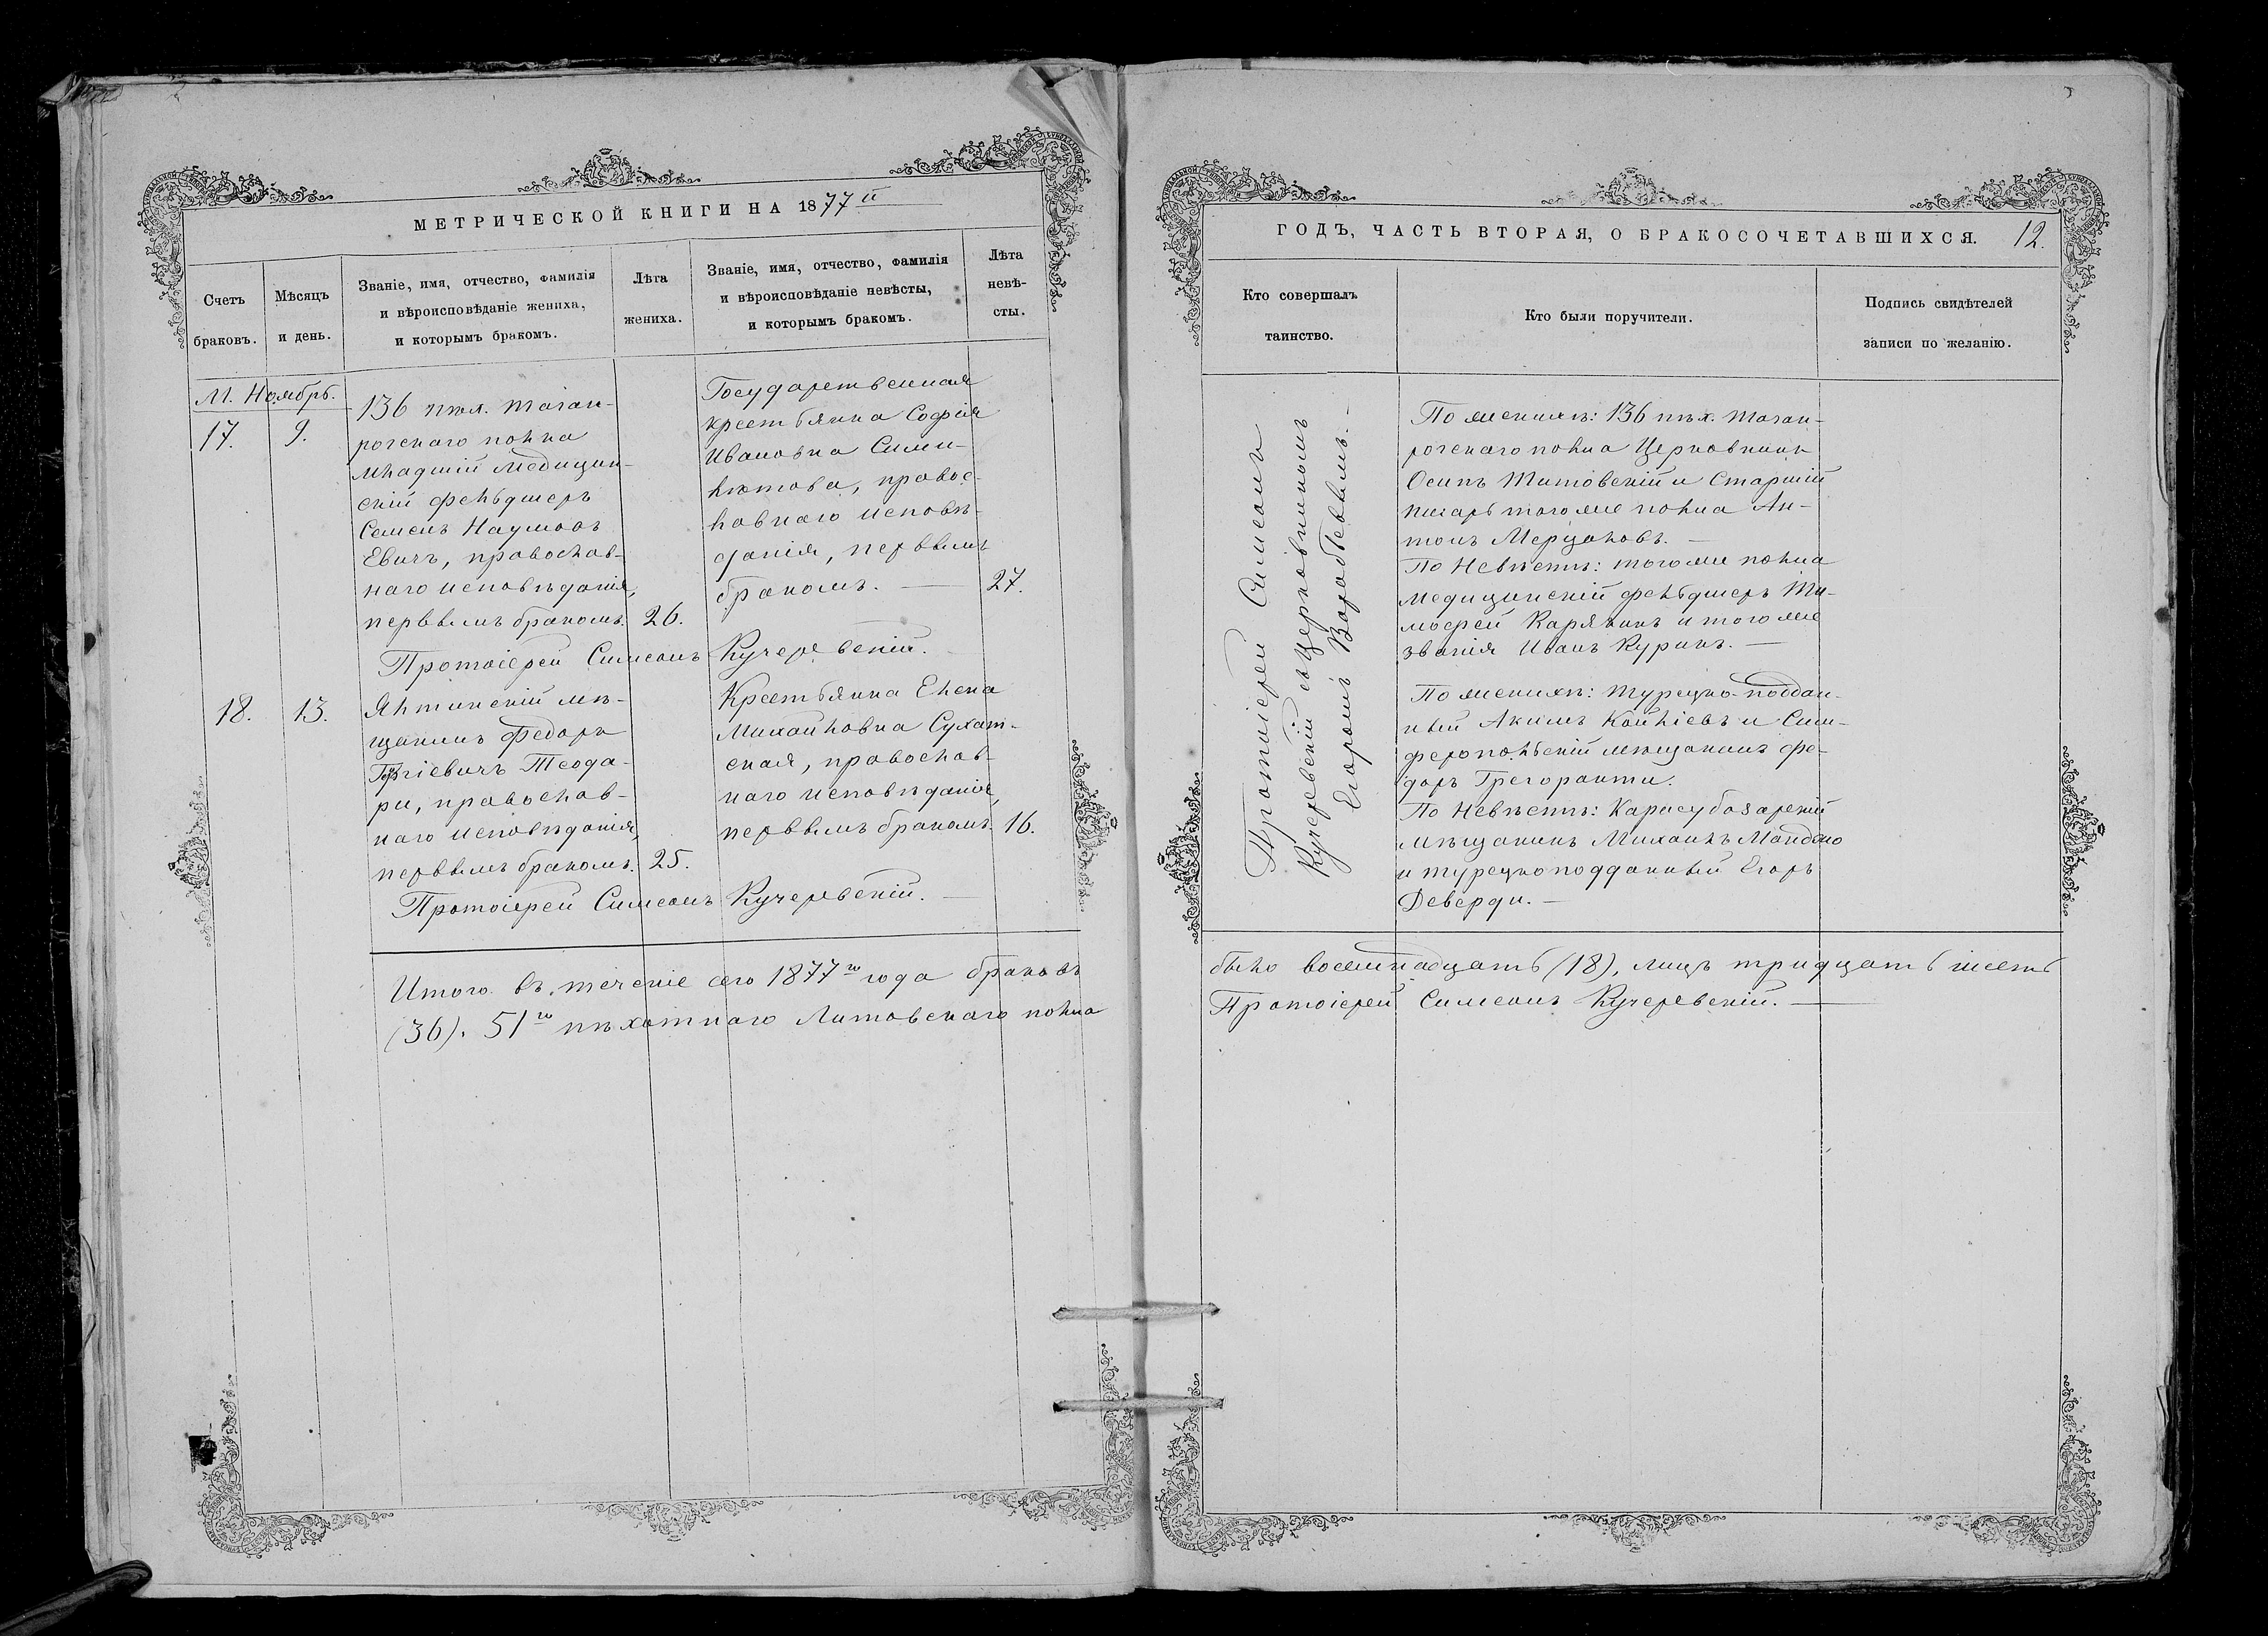 МЕТРИЧЕСКОЙ КНИГИ НА 1877й
Счетъ браковъ.
Мѣсяцъ и день.
Званіе, имя, отчество, фамилія
и вѣроисповѣданіе жениха,
и которымъ бракомъ.
Лѣта
жениха.
Званіе, имя, отчество, фамилія
и вѣроисповѣданіе невѣсты,
и которымъ бракомъ.
Лѣта
невѣ-
сты.
М. Ноябрь.
17.
9.
136 пѣх. Таган-
рогскаго полка
младшій медицин-
скій фельдшеръ
Семенъ Наумовъ
Евичъ, православ-
наго исповѣданія,
первымъ бракомъ.
26.
Государственная
крестьянка Софія
Ивановна Сили-
лютова, правос-
лавнаго исповѣ-
данія, первымъ
бракомъ. —
27.
Протоіерей Симеонъ Кучеревскій.
18.
13.
Ялтинскій мѣ-
щанинъ Федоръ
Георгіевичъ Теода-
ри, православ-
наго исповѣданія,
первымъ бракомъ.
25.
Крестьянка Елена
Михайловна Сухат-
ская, православ-
наго исповѣданія,
первымъ бракомъ.
16.
Протоіерей Симеонъ Кучеревскій. —
Итого въ теченіе сего 1877го года браковъ
(36). 51го пѣхотнаго Литовскаго полка
ГОДЪ, ЧАСТЬ ВТОРАЯ, О БРАКОСОЧЕТАВШИХСЯ.
12.
Кто совершалъ
таинство.
Кто были поручители.
Подпись свидѣтелей
записи по желанію.
Протоіерей Симеонъ
Кучеревскій съ Церковникомъ
Егоромъ Воробьевымъ. —
По женихѣ: 136 пѣх. Таган-
рогскаго полка Церковникъ
Осипъ Титовскій и Старшій
писарь того же полка Ан-
тонъ Мерцаловъ. —
По Невѣстѣ: того же полка
медицинскій фельдшеръ Ти-
мофей Карякинъ и того же
званія Иванъ Куринъ. —
По женихѣ: турецко-поддан-
ный Акимъ Койліевъ и Сим-
феропольскій мѣщанинъ Фе-
доръ Грегоранти.
По Невѣстѣ: Карасубазарскій
мѣщанинъ Михаилъ Мандало
и турецкоподданный Егоръ
Деверди. —
было восемнадцать (18), лицъ тридцать шесть
Протоіерей Симеонъ Кучеревскій. —